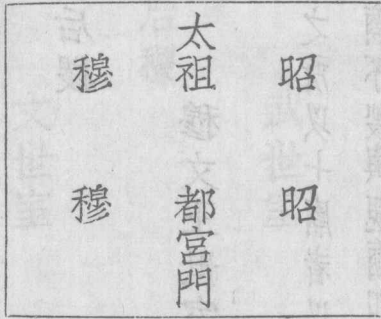 昭
昭
太祖
都宮門
穆
穆